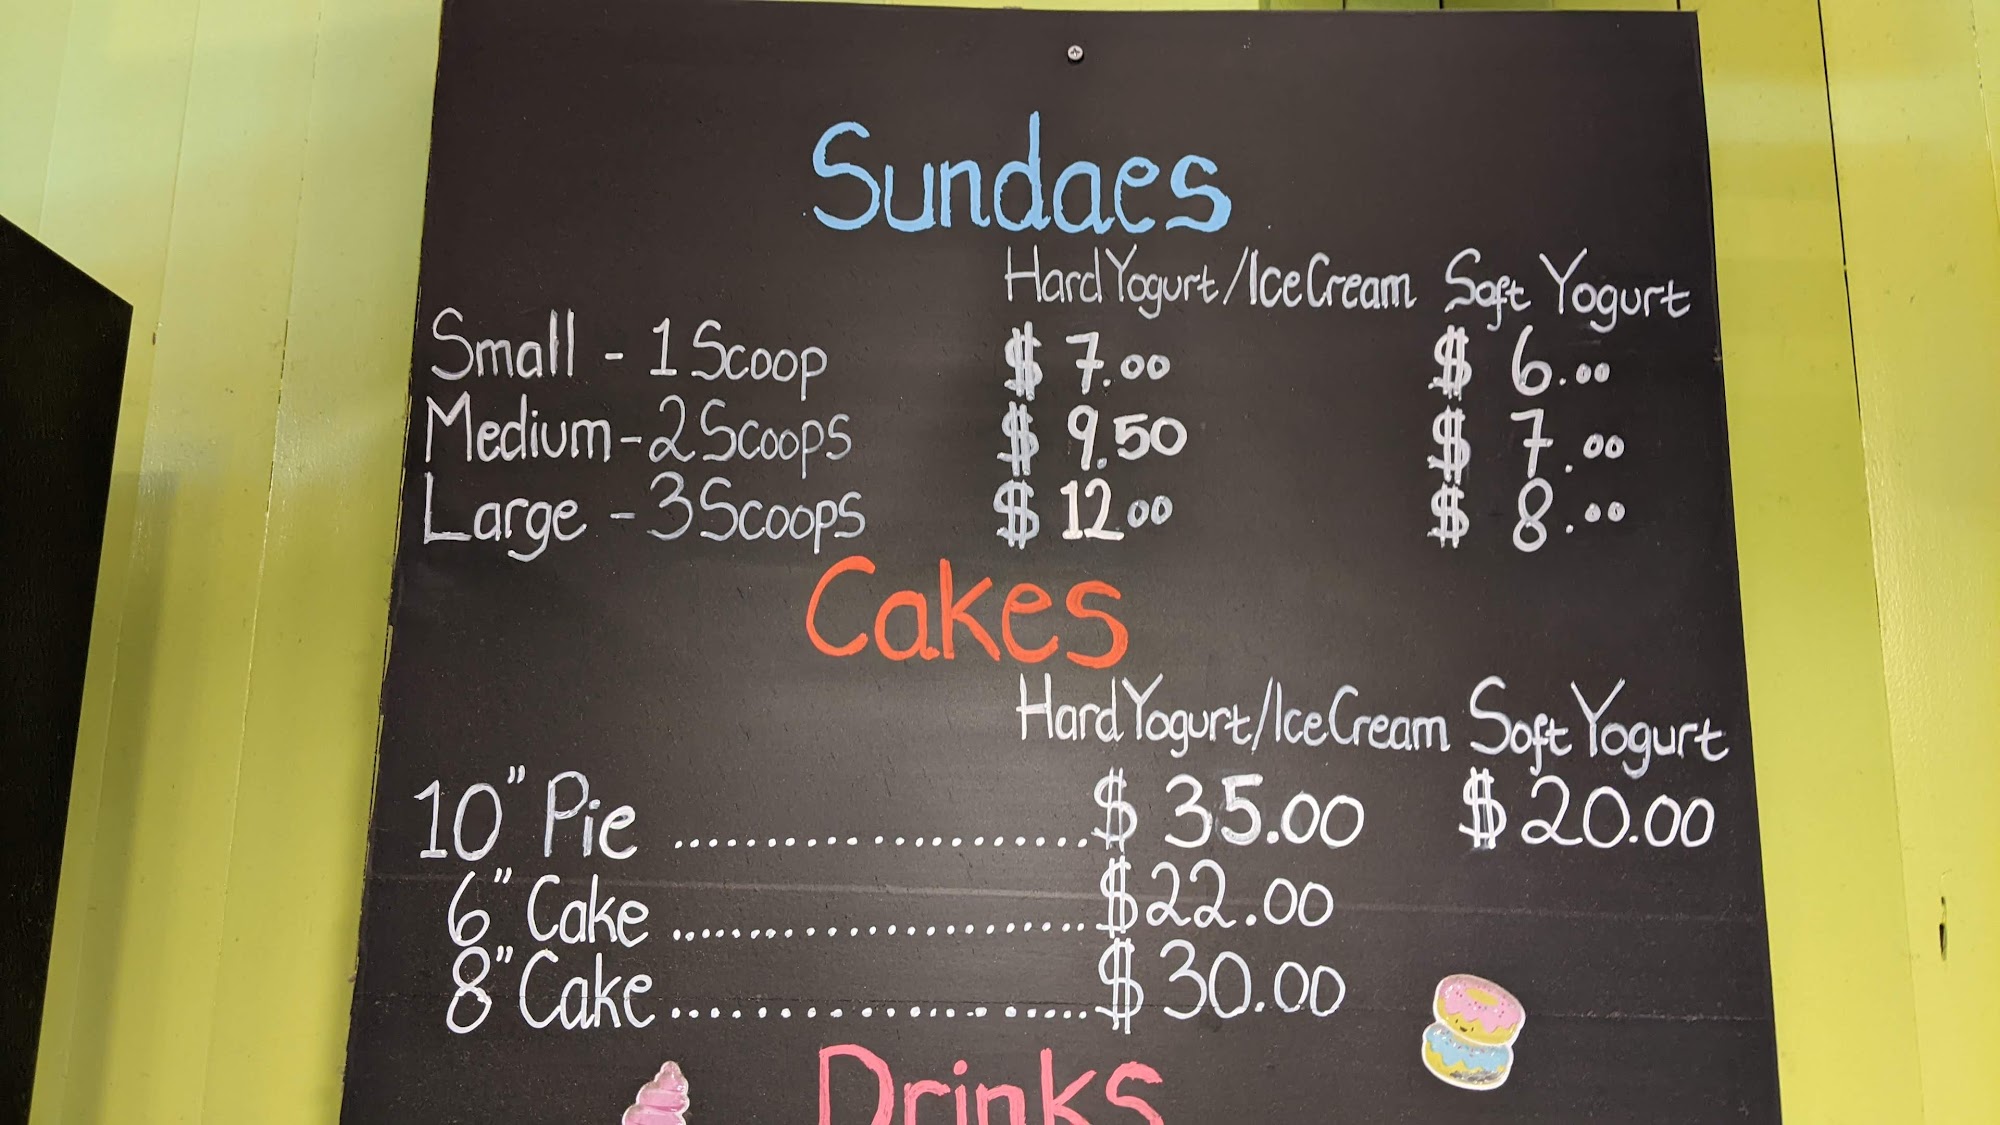 Sundaes
Hard Yogurt/Ice Cream Soft Yogurt
Small - 1 Scoop $ 7.00 $ 6.00
Medium - 2 Scoops $ 9.50 $ 7.00
Large - 3 Scoops $ 12.00 $ 8.00
Cakes
Hard Yogurt/Ice Cream Soft Yogurt
10" Pie ......................$ 35.00 $ 20.00
6" Cake ......................$22.00
8" Cake ......................$ 30.00
Drinks